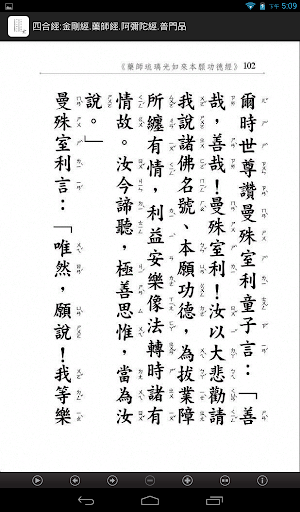 下午 5:09
四合經:金剛經.藥師經.阿彌陀經.普門品
《藥師琉璃光如來本願功德經》 102
爾時世尊讚曼殊室利童子言：「善
哉，善哉！曼殊室利！汝以大悲勸請
我說諸佛名號、本願功德，為拔業障
所纏有情，利益安樂像法轉時諸有
情故。汝今諦聽，極善思惟，當為汝
說。」
曼殊室利言：「唯然，願說！我等樂